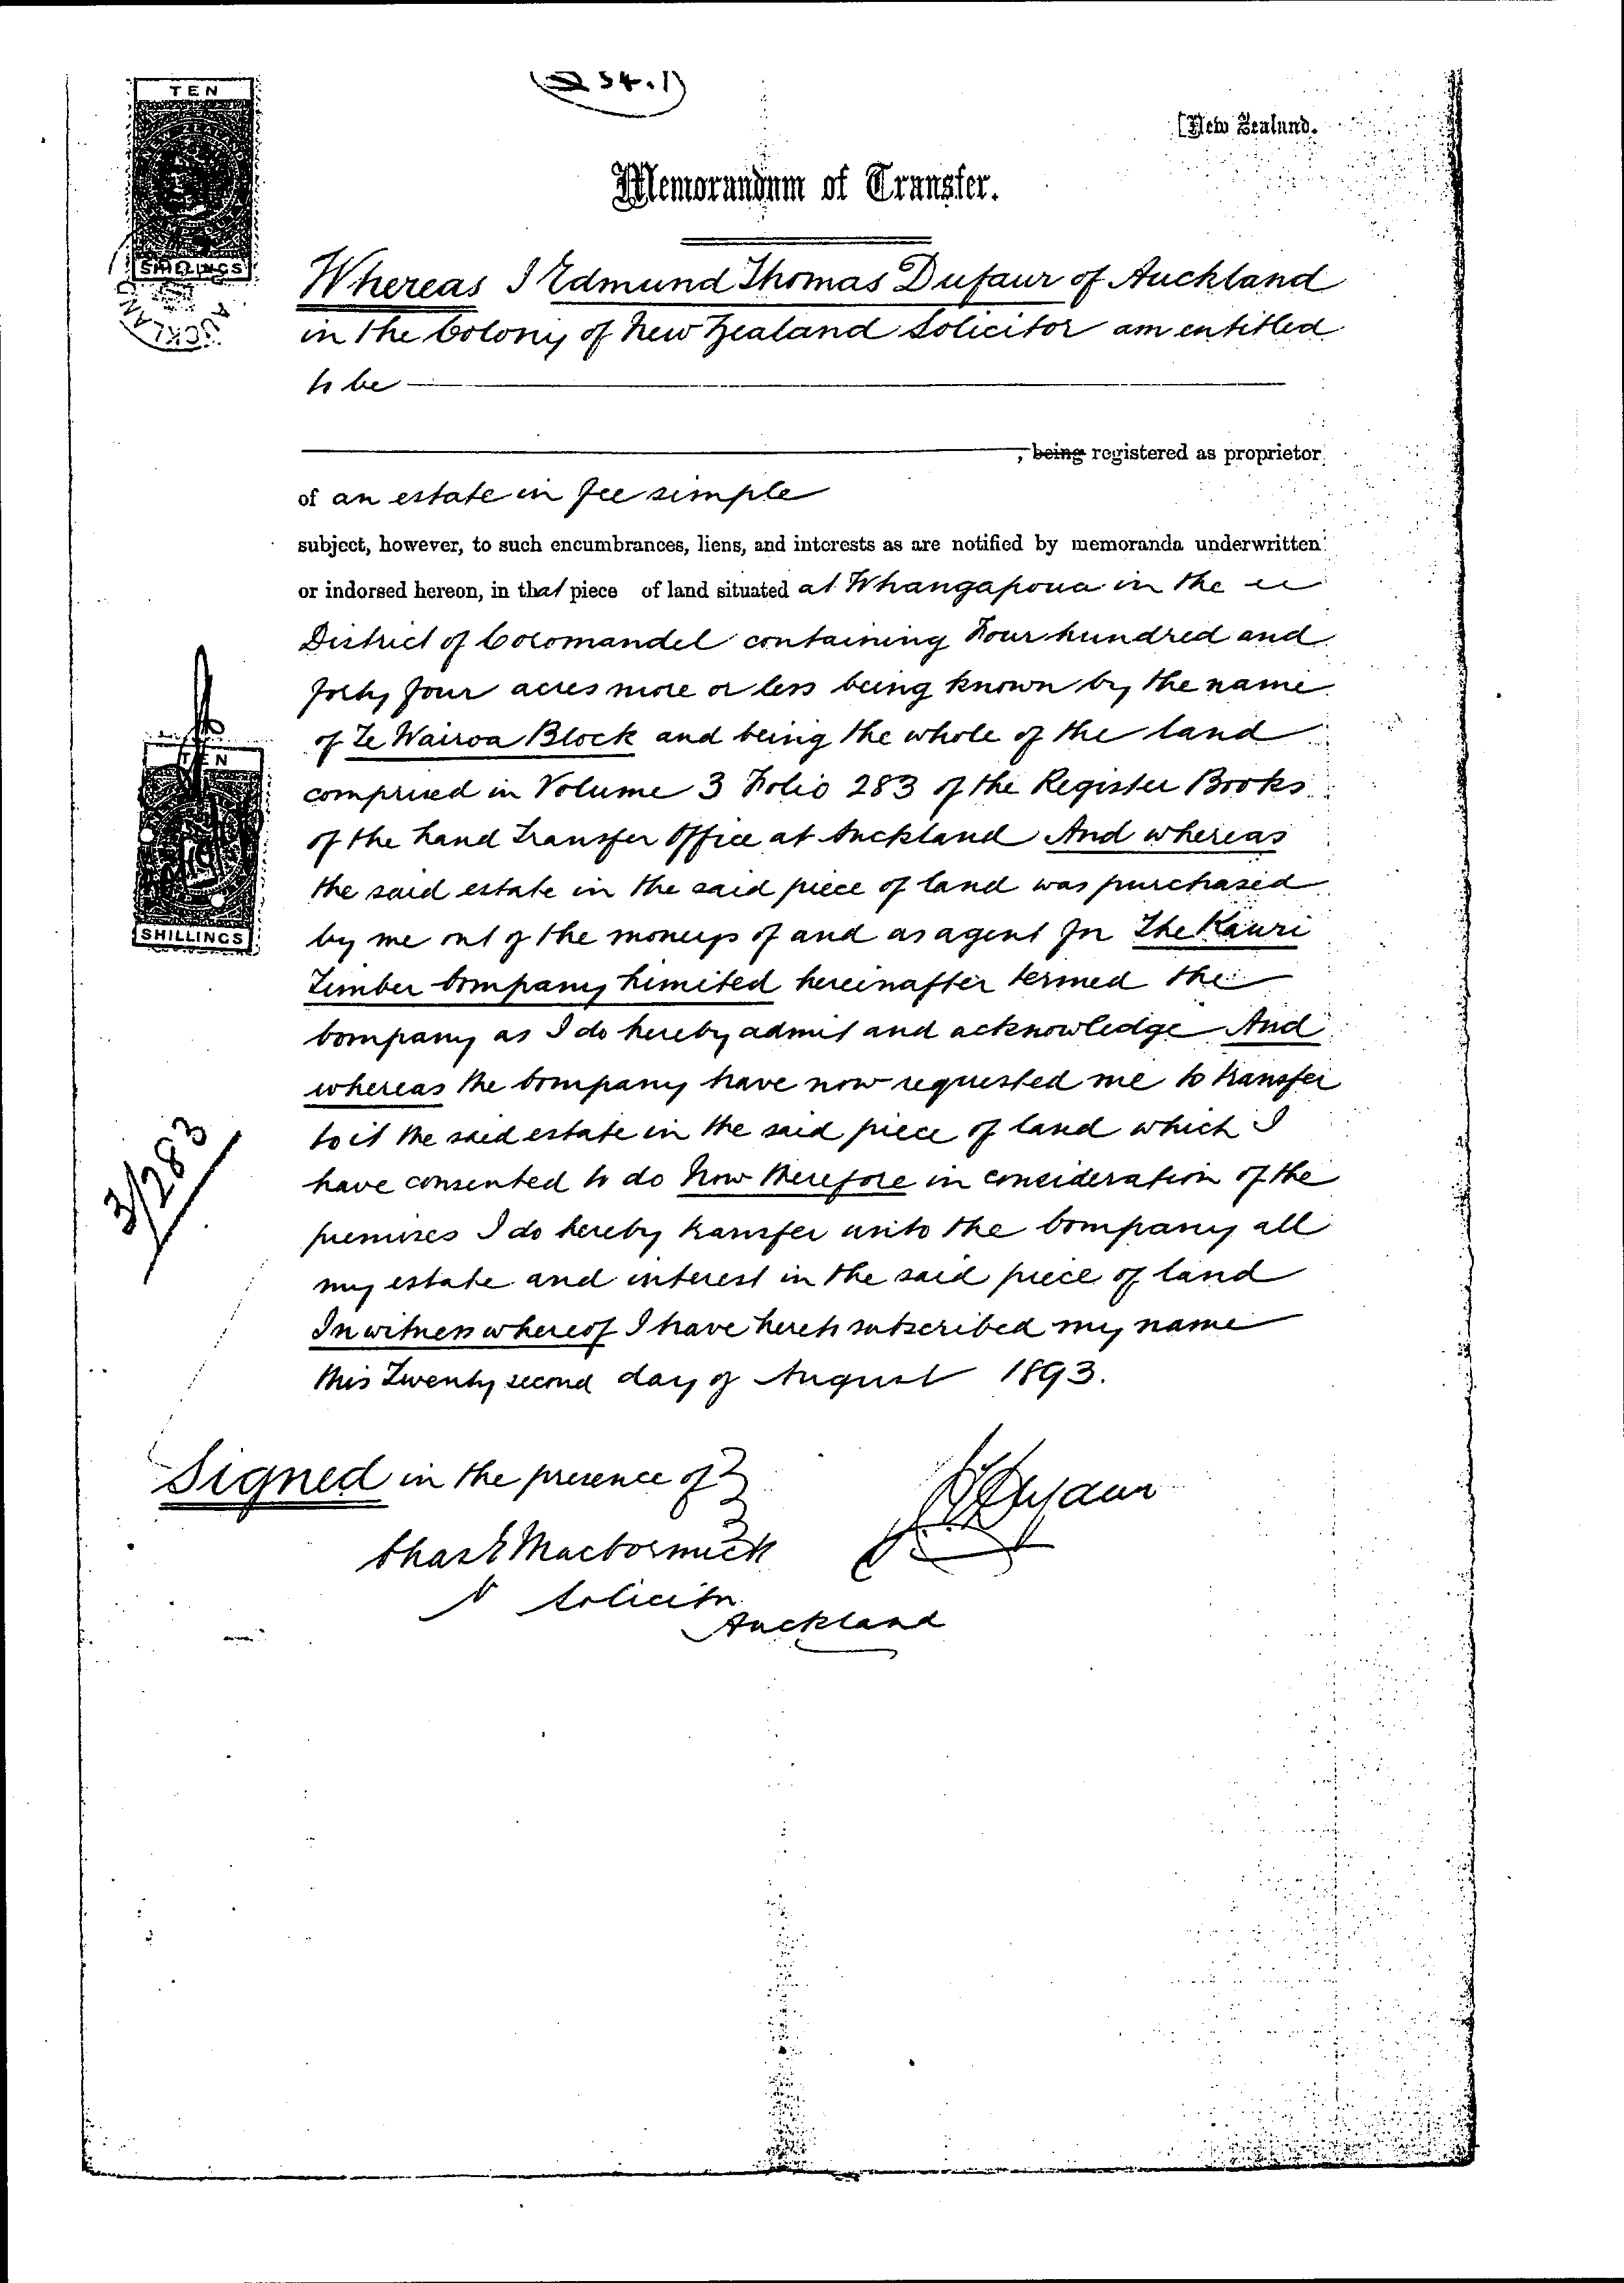 TEN
SHILLINGS
AUCKLAND
254.1
[New Zealand.
Memorandum of Transfer.
Whereas I Edmund Thomas Dufaur of Auckland
in the Colony of New Zealand Solicitor am entitled
to be
, being registered as proprietor
of an estate in fee simple
subject, however, to such encumbrances, liens, and interests as are notified by memoranda underwritten
or indorsed hereon, in that piece of land situated at Whangapoua in the
District of Coromandel containing Four hundred and
forty four acres more or less being known by the name
of Te Wairoa Block and being the whole of the land
comprised in Volume 3 Folio 283 of the Register Books
of the Land Transfer Office at Auckland And whereas
the said estate in the said piece of land was purchased
by me out of the moneys of and as agent for The Kauri
Timber Company Limited hereinafter termed the
Company as I do hereby admit and acknowledge And
whereas the Company have now requested me to transfer
to it the said estate in the said piece of land which I
have consented to do Now therefore in consideration of the
premises I do hereby transfer unto the Company all
my estate and interest in the said piece of land
In witness whereof I have hereto subscribed my name
this Twenty second day of August 1893.
TEN
SHILLINGS
3/283
Signed in the presence of
Chas E MacCormick
Solicitor
Auckland
E T Dufaur